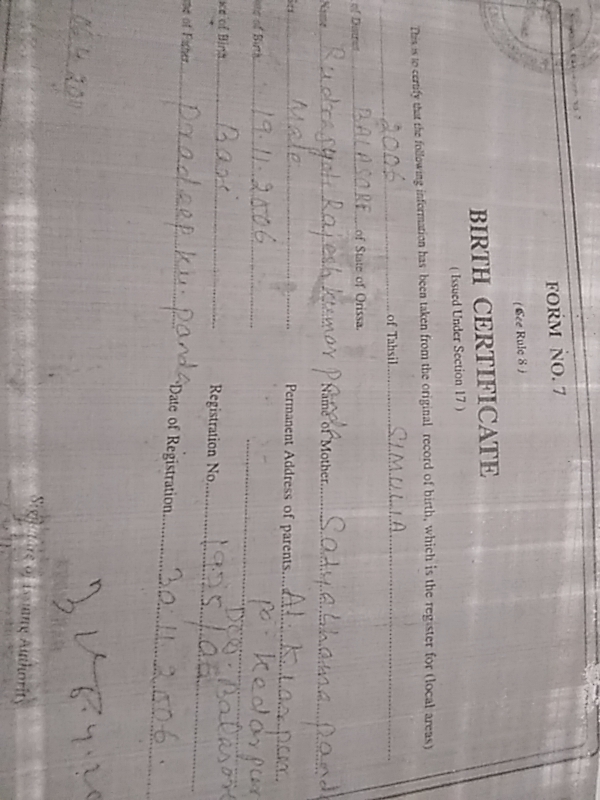 FORM NO. 7
(See Rule 8)
BIRTH CERTIFICATE
(Issued Under Section 17)
This is to certify that the following information has been taken from the original record of birth, which is the register for (local areas)
2006 of Tahsil SIMULIA
of District BALASORE of State of Orissa.
Name Rudrasydi Rajesh Kumar Panda Name of Mother Satyabhama Panda
Sex Male Permanent Address of parents At. Kharpur
Po. Kedarpur
Date of Birth 19.11.2006 Dist. Balasore
Place of Birth Bari Registration No. 1925/06
Name of Father Pradeep Ku. Panda Date of Registration 30.11.2006
Signature of Issuing Authority